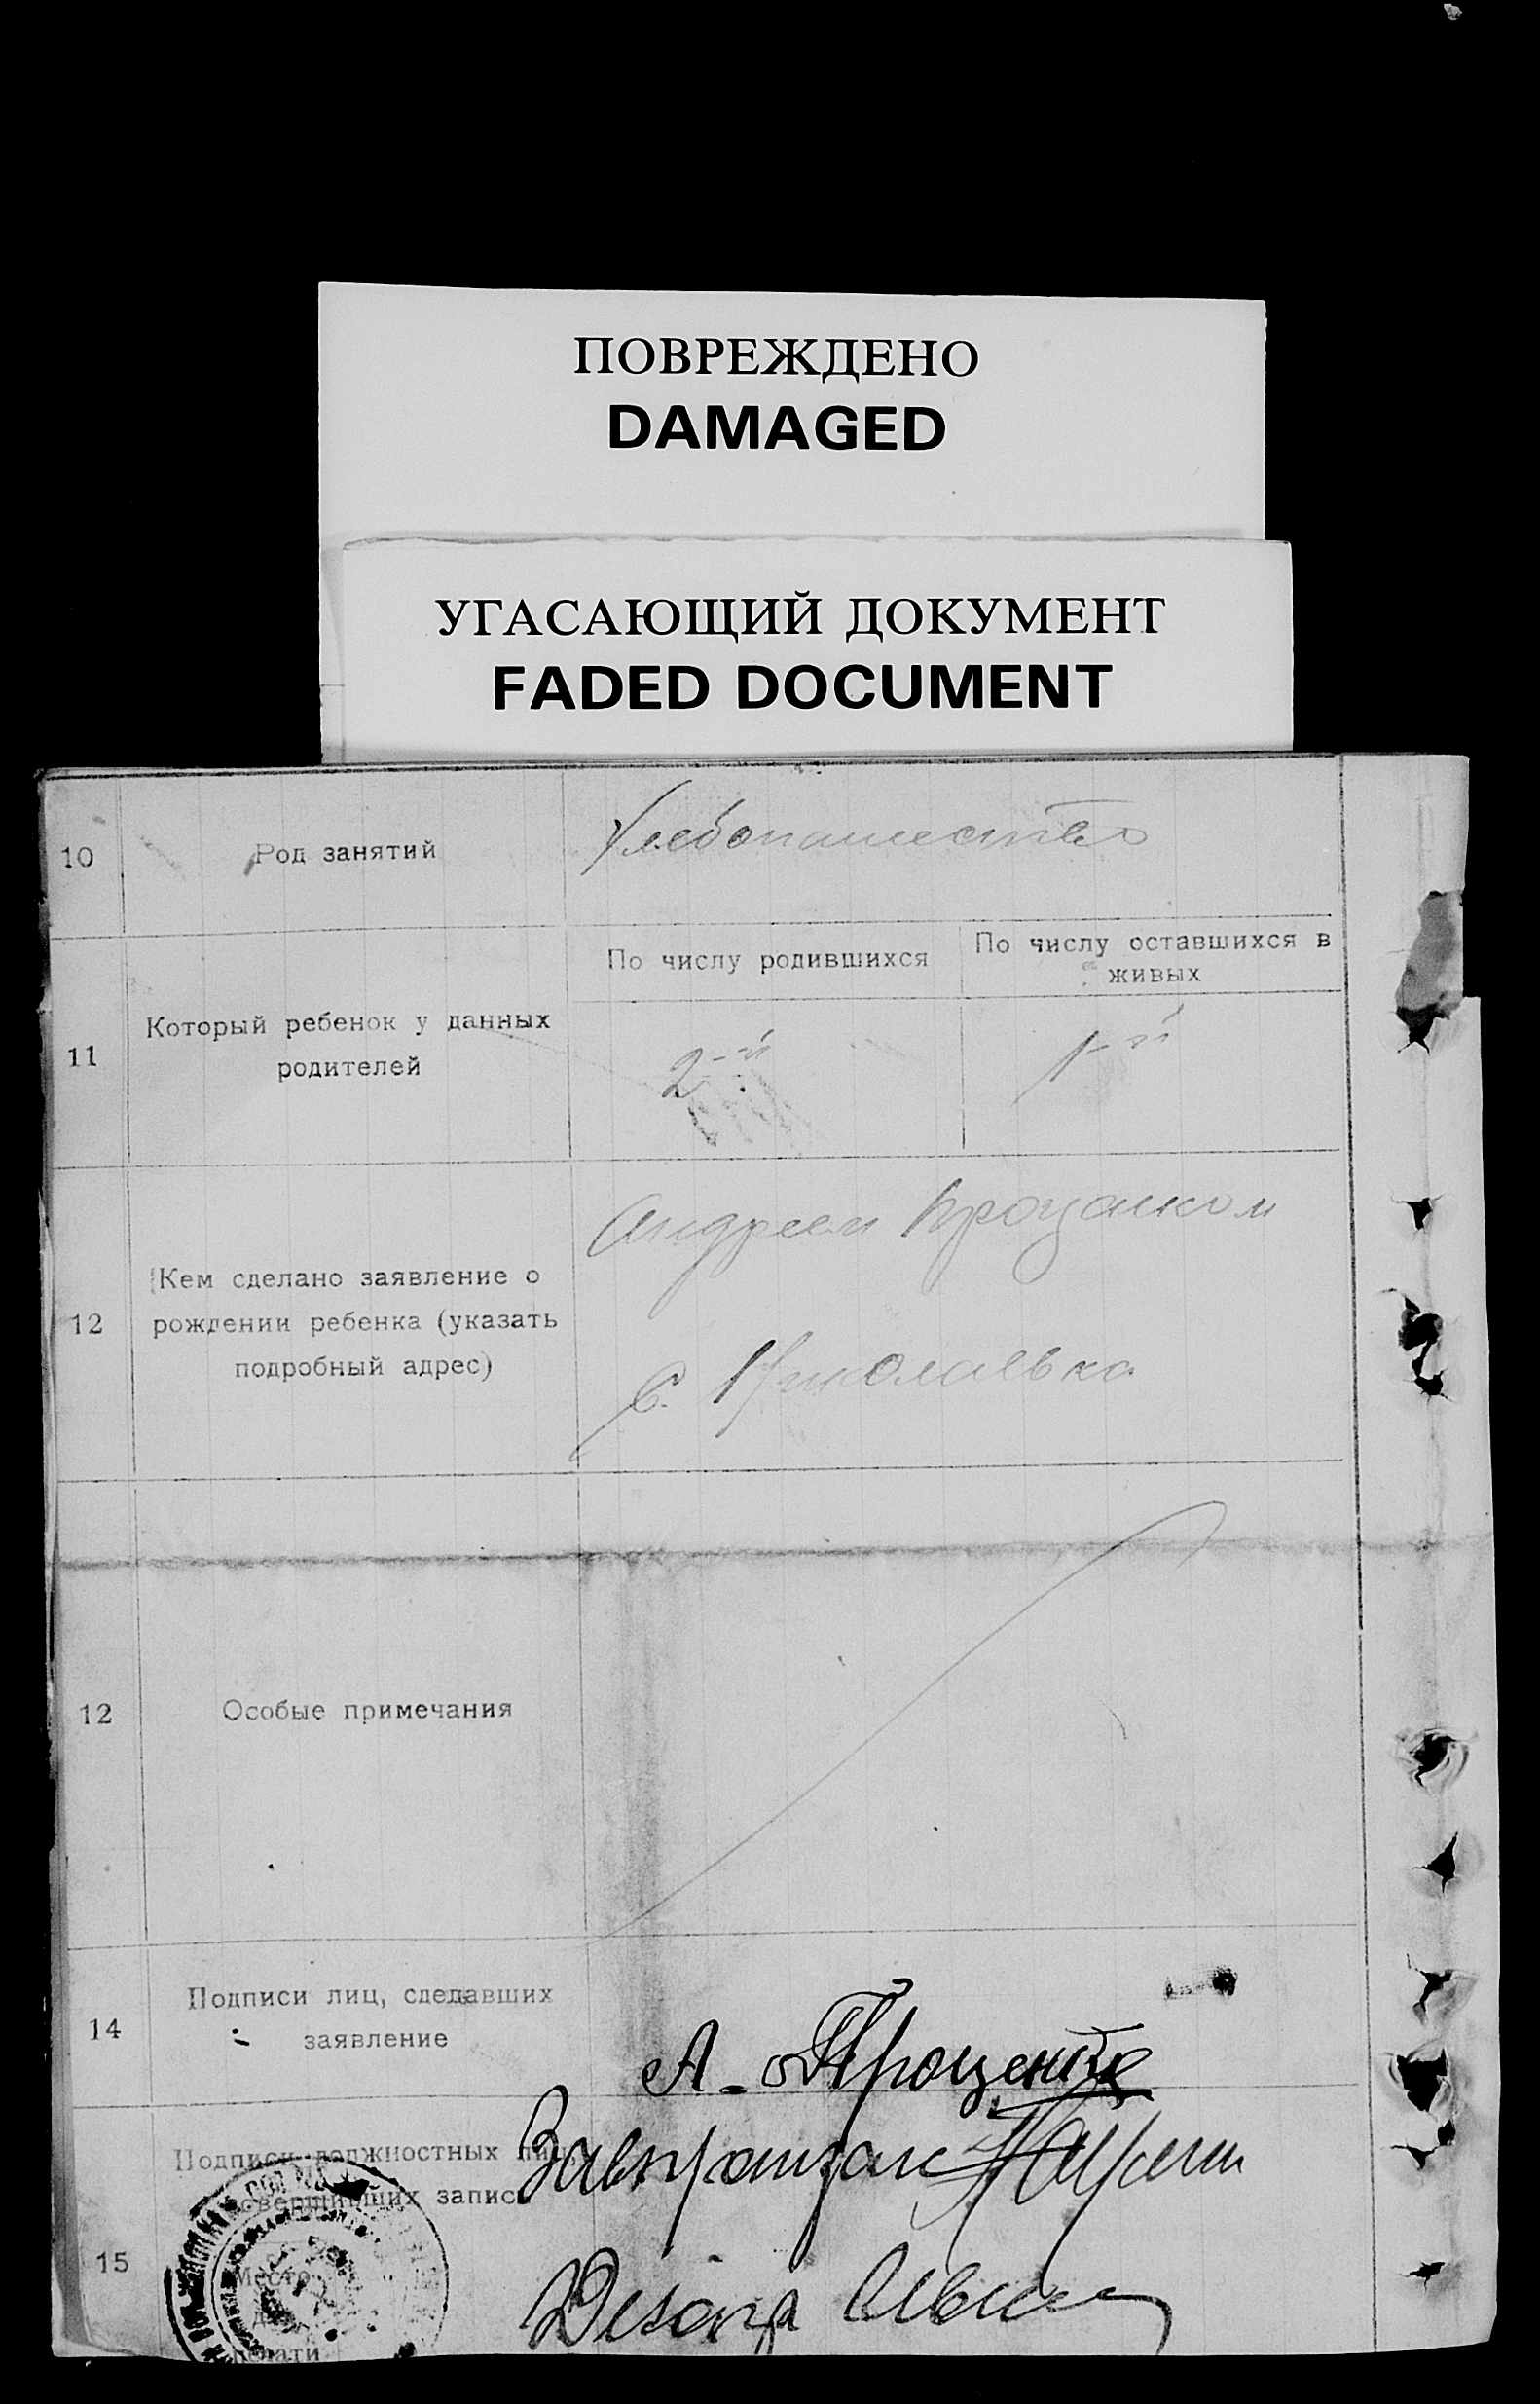 ПОВРЕЖДЕНО
DAMAGED
УГАСАЮЩИЙ ДОКУМЕНТ
FADED DOCUMENT
10
Род занятий
Хлебопашество
11
Который ребенок у данных
родителей
По числу родившихся
По числу оставшихся в
живых
2-й
1-й
12
Кем сделано заявление о
рождении ребенка (указать
подробный адрес)
Андреем Проценком
с. Николаевка
12
Особые примечания
14
Подписи лиц, сделавших
заявление
А. Проценко
15
Подписи должностных лиц,
совершивших запись
Завзагзак
Место
для
печати